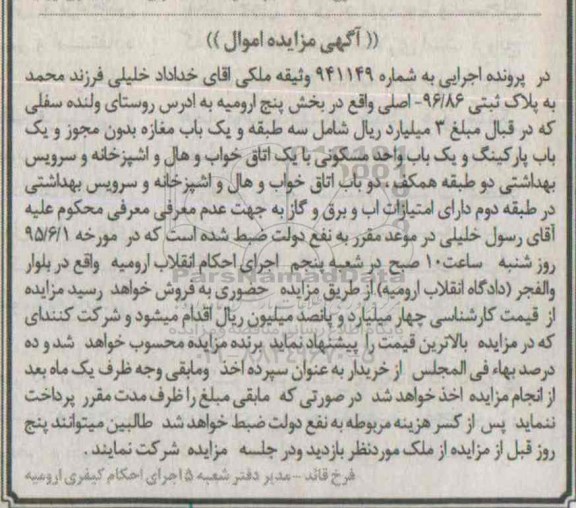 (( آگهی مزایده اموال ))
در پرونده اجرایی به شماره ۹۴۱۱۴۹ وثیقه ملکی اقای خداداد خلیلی فرزند محمد
به پلاک ثبتی ۹۶/۸۶- اصلی واقع در بخش پنج ارومیه به ادرس روستای ولنده سفلی
که در قبال مبلغ ۳ میلیارد ریال شامل سه طبقه و یک باب مغازه بدون مجوز و یک
باب پارکینگ و یک باب واحد مسکونی با یک اتاق خواب و هال و اشپزخانه و سرویس
بهداشتی دو طبقه همکف ، دو باب اتاق خواب و هال و اشپزخانه و سرویس بهداشتی
در طبقه دوم دارای امتیازات اب و برق و گاز به جهت عدم معرفی معرفی محکوم علیه
آقای رسول خلیلی در موعد مقرر به نفع دولت ضبط شده است که در مورخه ۹۵/۶/۱
روز شنبه ساعت۱۰ صبح در شعبه پنجم اجرای احکام انقلاب ارومیه واقع در بلوار
والفجر (دادگاه انقلاب ارومیه) از طریق مزایده حضوری به فروش خواهد رسید مزایده
از قیمت کارشناسی چهار میلیارد و پانصد میلیون ریال اقدام میشود و شرکت کنندای
که در مزایده بالاترین قیمت را پیشنهاد نماید برنده مزایده محسوب خواهد شد و ده
درصد بهاء فی المجلس از خریدار به عنوان سپرده اخذ ومابقی وجه ظرف یک ماه بعد
از انجام مزایده اخذ خواهد شد در صورتی که مابقی مبلغ را ظرف مدت مقرر پرداخت
ننماید پس از کسر هزینه مربوطه به نفع دولت ضبط خواهد شد طالبین میتوانند پنج
روز قبل از مزایده از ملک موردنظر بازدید ودر جلسه مزایده شرکت نمایند .
فرخ قائد – مدیر دفتر شعبه ۵ اجرای احکام کیفری ارومیه
ParsNamadData